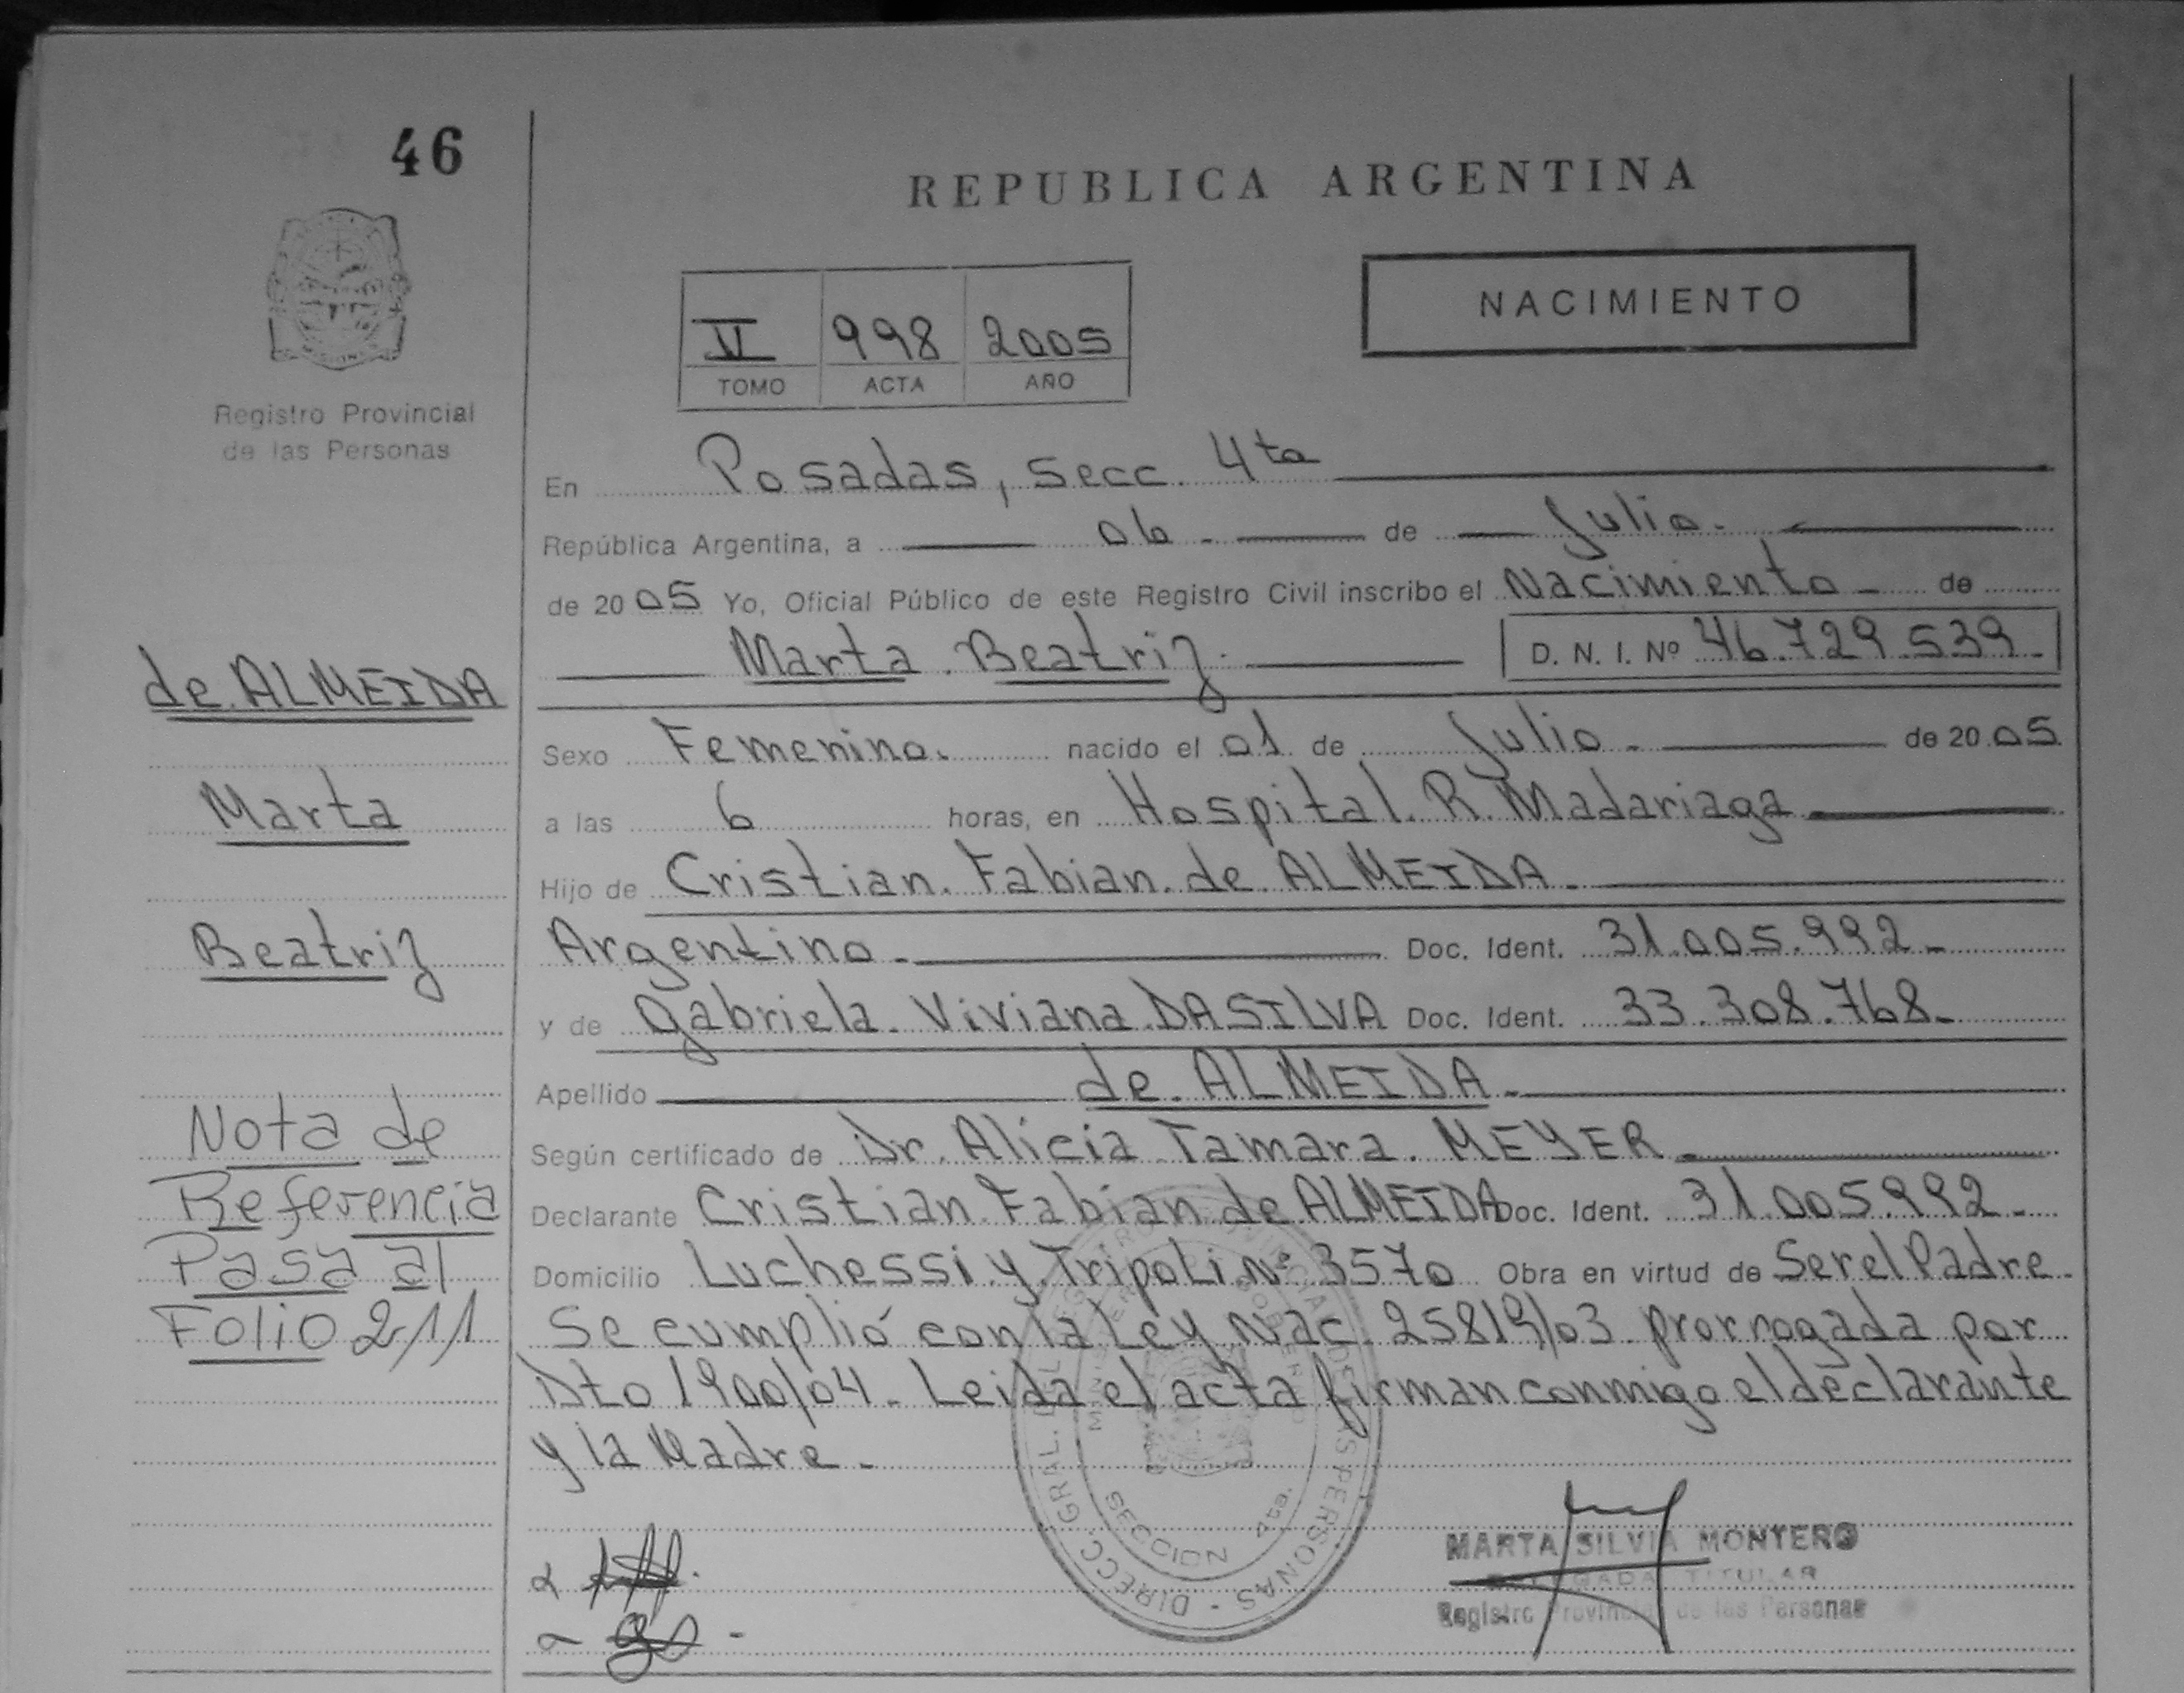 46
REPUBLICA ARGENTINA
NACIMIENTO
998 2005
TOMO ACTA AÑO
Registro Provincial
de las Personas
En Posadas, secc. 4ta
República Argentina, a 06 - de Julio.
de 2005 Yo, Oficial Público de este Registro Civil inscribo el Nacimiento - de
Marta Beatriz. D. N. I. Nº 46.729.539-
Sexo Femenino. nacido el 01 de Julio - de 2005
a las 6 horas, en Hospital R. Madariaga
Hijo de Cristian Fabian de ALMEIDA -
Argentino - Doc. Ident. 31.005.992-
y de Gabriela Viviana DASILVA Doc. Ident. 33.308.768-
Apellido de ALMEIDA -
Según certificado de Dr. Alicia Tamara MEYER -
Declarante Cristian Fabian de ALMEIDA Doc. Ident. 31.005.992-
Domicilio Luchessi y Tripoli Nº 3570 Obra en virtud de Ser el Padre
Se cumplió con la Ley Nac. 25819/03 prorrogada por
Dto 1900/04 - Leida el acta firman conmigo el declarante
y la Madre -
de ALMEIDA
Marta
Beatriz
Nota de
Referencia
Pasa al
Folio 211
DIRECC. GRAL. DEL REGISTRO PROVINCIAL DE LAS PERSONAS -
SECCION 4ta.
MARTA SILVIA MONTERO
DELEGADA TITULAR
Registro Provincial de las Personas